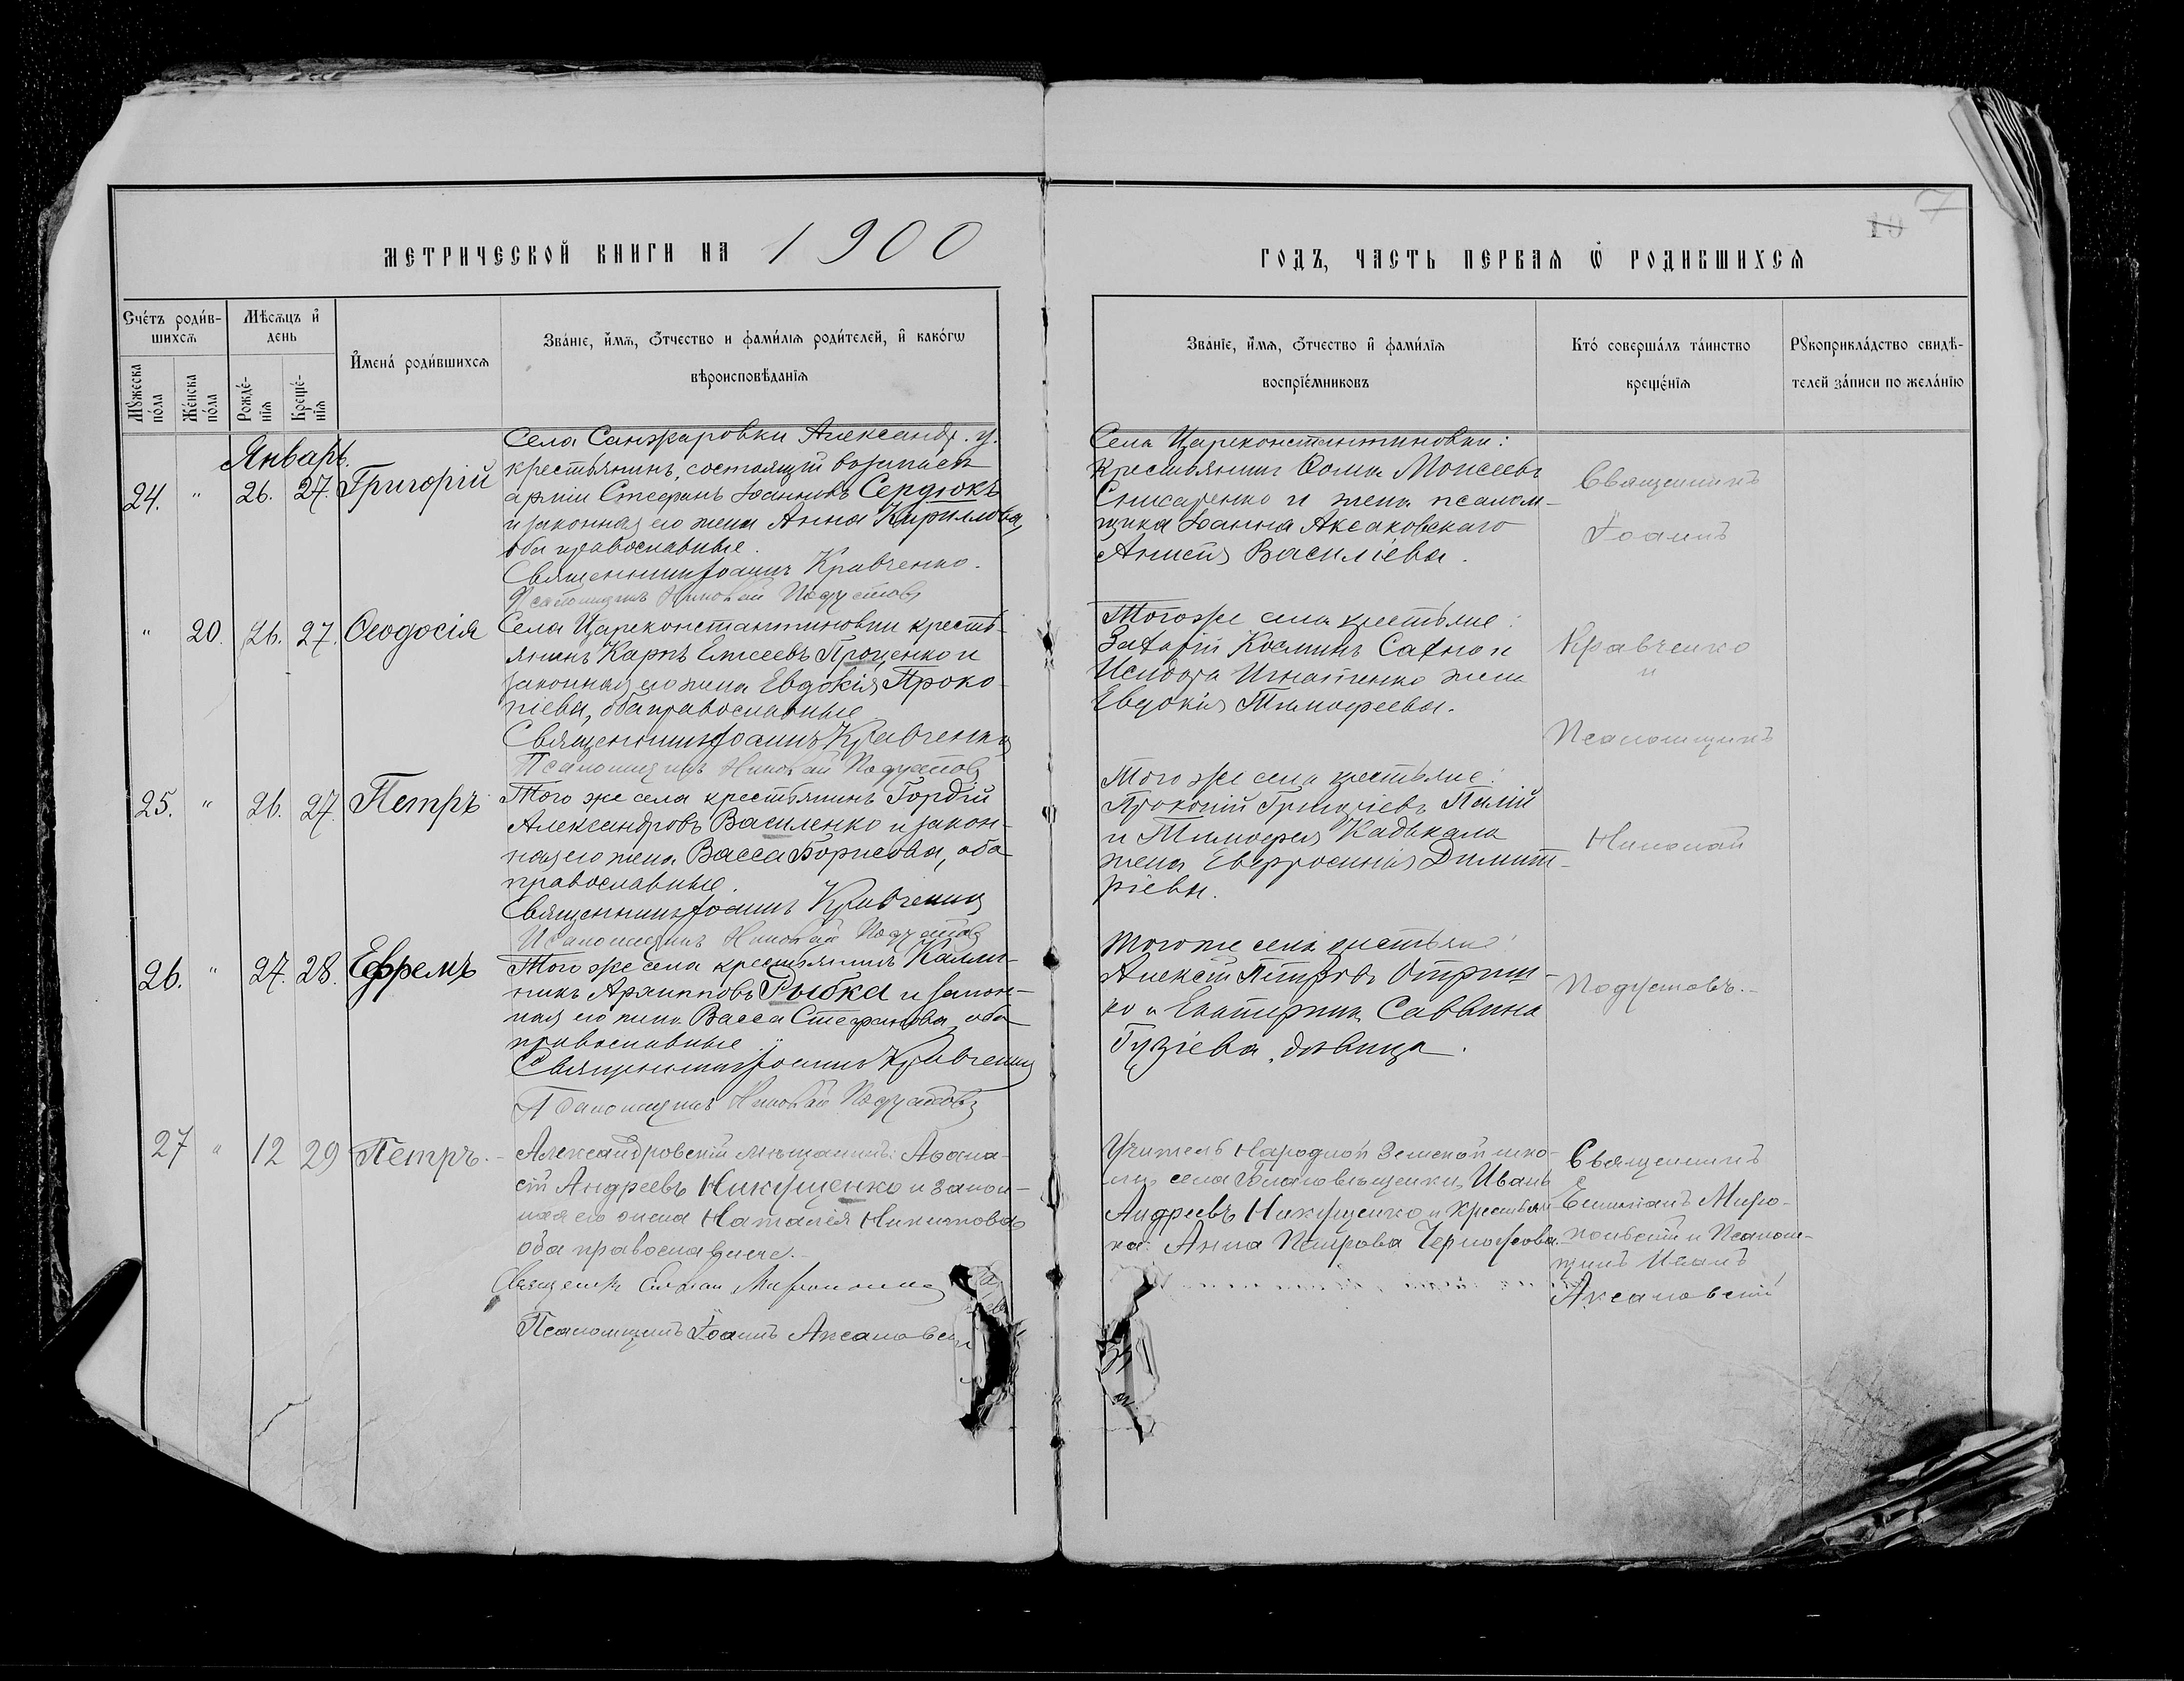 7
10
МЕТРИЧЕСКОЙ КНИГИ НА 1900
ГОДЪ, ЧАСТЬ ПЕРВАЯ Ѡ РОДИВШИХСЯ
Счетъ родив-
шихся
Мѣсяцъ и
день
Мужеска
пола
Женска
пола
Рожде-
нія
Креще-
нія
Имена родившихся
Званіе, имя, отчество и фамилія родителей, и какогѡ
вѣроисповѣданія
Званіе, имя, отчество и фамилія
воспріемниковъ
Кто совершалъ таинство
крещенія
Рукоприкладство свидѣ-
телей записи по желанію
Январь.
24. " 26. 27. Григорій
Села Санжаровки Александр. у.
крестьянинъ, состоящій в запасѣ
арміи Стефанъ Іоанновъ Сердюкъ
и законная его жена Анна Кириллова,
оба православные.
Священникъ Іоаннъ Кравченко.
Псаломщикъ Николай Подустовъ
Села Цареконстантиновки:
крестьянинъ Ѳома Моисеевъ
Снисаренко и жена псалом-
щика Іоанна Аксаковскаго
Анисія Василіева.
Священникъ
Іоаннъ
Кравченко
и
Псаломщикъ
Николай
Подустовъ.-
" 20. 26. 27. Ѳеодосія
Села Цареконстантиновки кресть-
янинъ Карпъ Елисеевъ Проценко и
законная его жена Евдокія Проко-
піева, оба православные
Священникъ Іоаннъ Кравченко
Псаломщикъ Николай Подустовъ
Того же села крестьяне:
Захарій Косминъ Сахно и
Исидора Игнатенко жена
Евдокія Тимофеева.
25. " 26. 27. Петръ
Того же села крестьянинъ Гордій
Александровъ Василенко и закон-
ная его жена Васса Борисова, оба
православные.
Священникъ Іоаннъ Кравченко
Псаломщикъ Николай Подустовъ
Того же села крестьяне:
Прокопій Григоріевъ Палій
и Тимофея Кадькала
жена Евфросинія Димит-
ріева.
26. " 27. 28. Ефремъ
Того же села крестьянинъ Калли-
никъ Архипповъ Рыбка и закон-
ная его жена Васса Стефанова, оба
православные.
Священникъ Іоаннъ Кравченко
Псаломщикъ Николай Подустовъ
Того же села крестьяне:
Алексѣй Петровъ Отриш-
ко и Екатерина Саввина
Гузіева, дѣвица.
27 " 12 29 Петръ.-
Александровскій мѣщанинъ: Аѳана-
сій Андреевъ Никущенко и закон-
ная его жена Наталія Никитова
оба православные.-
Священникъ
Псаломщикъ Іоаннъ Аксаковскій
Учитель Народной Земской шко-
лы села Благовѣщенки, Иванъ
Андреевъ Никущенко и крестьян-
ка: Анна Петрова Черноусова.
Священникъ
Емиліанъ Миро-
польскій и Псалом-
щикъ Иванъ
Аксаковскій